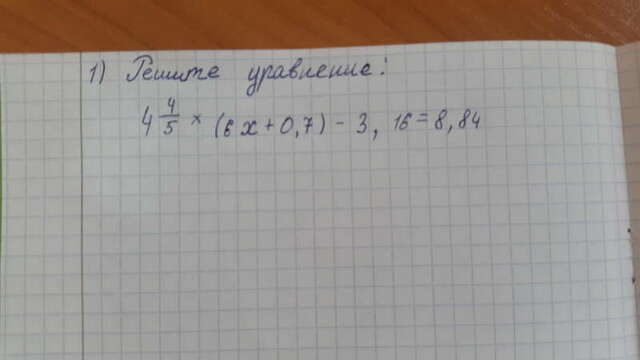 1) Решите уравнение:
4 4/5 × (6x+0,7) - 3,16=8,84